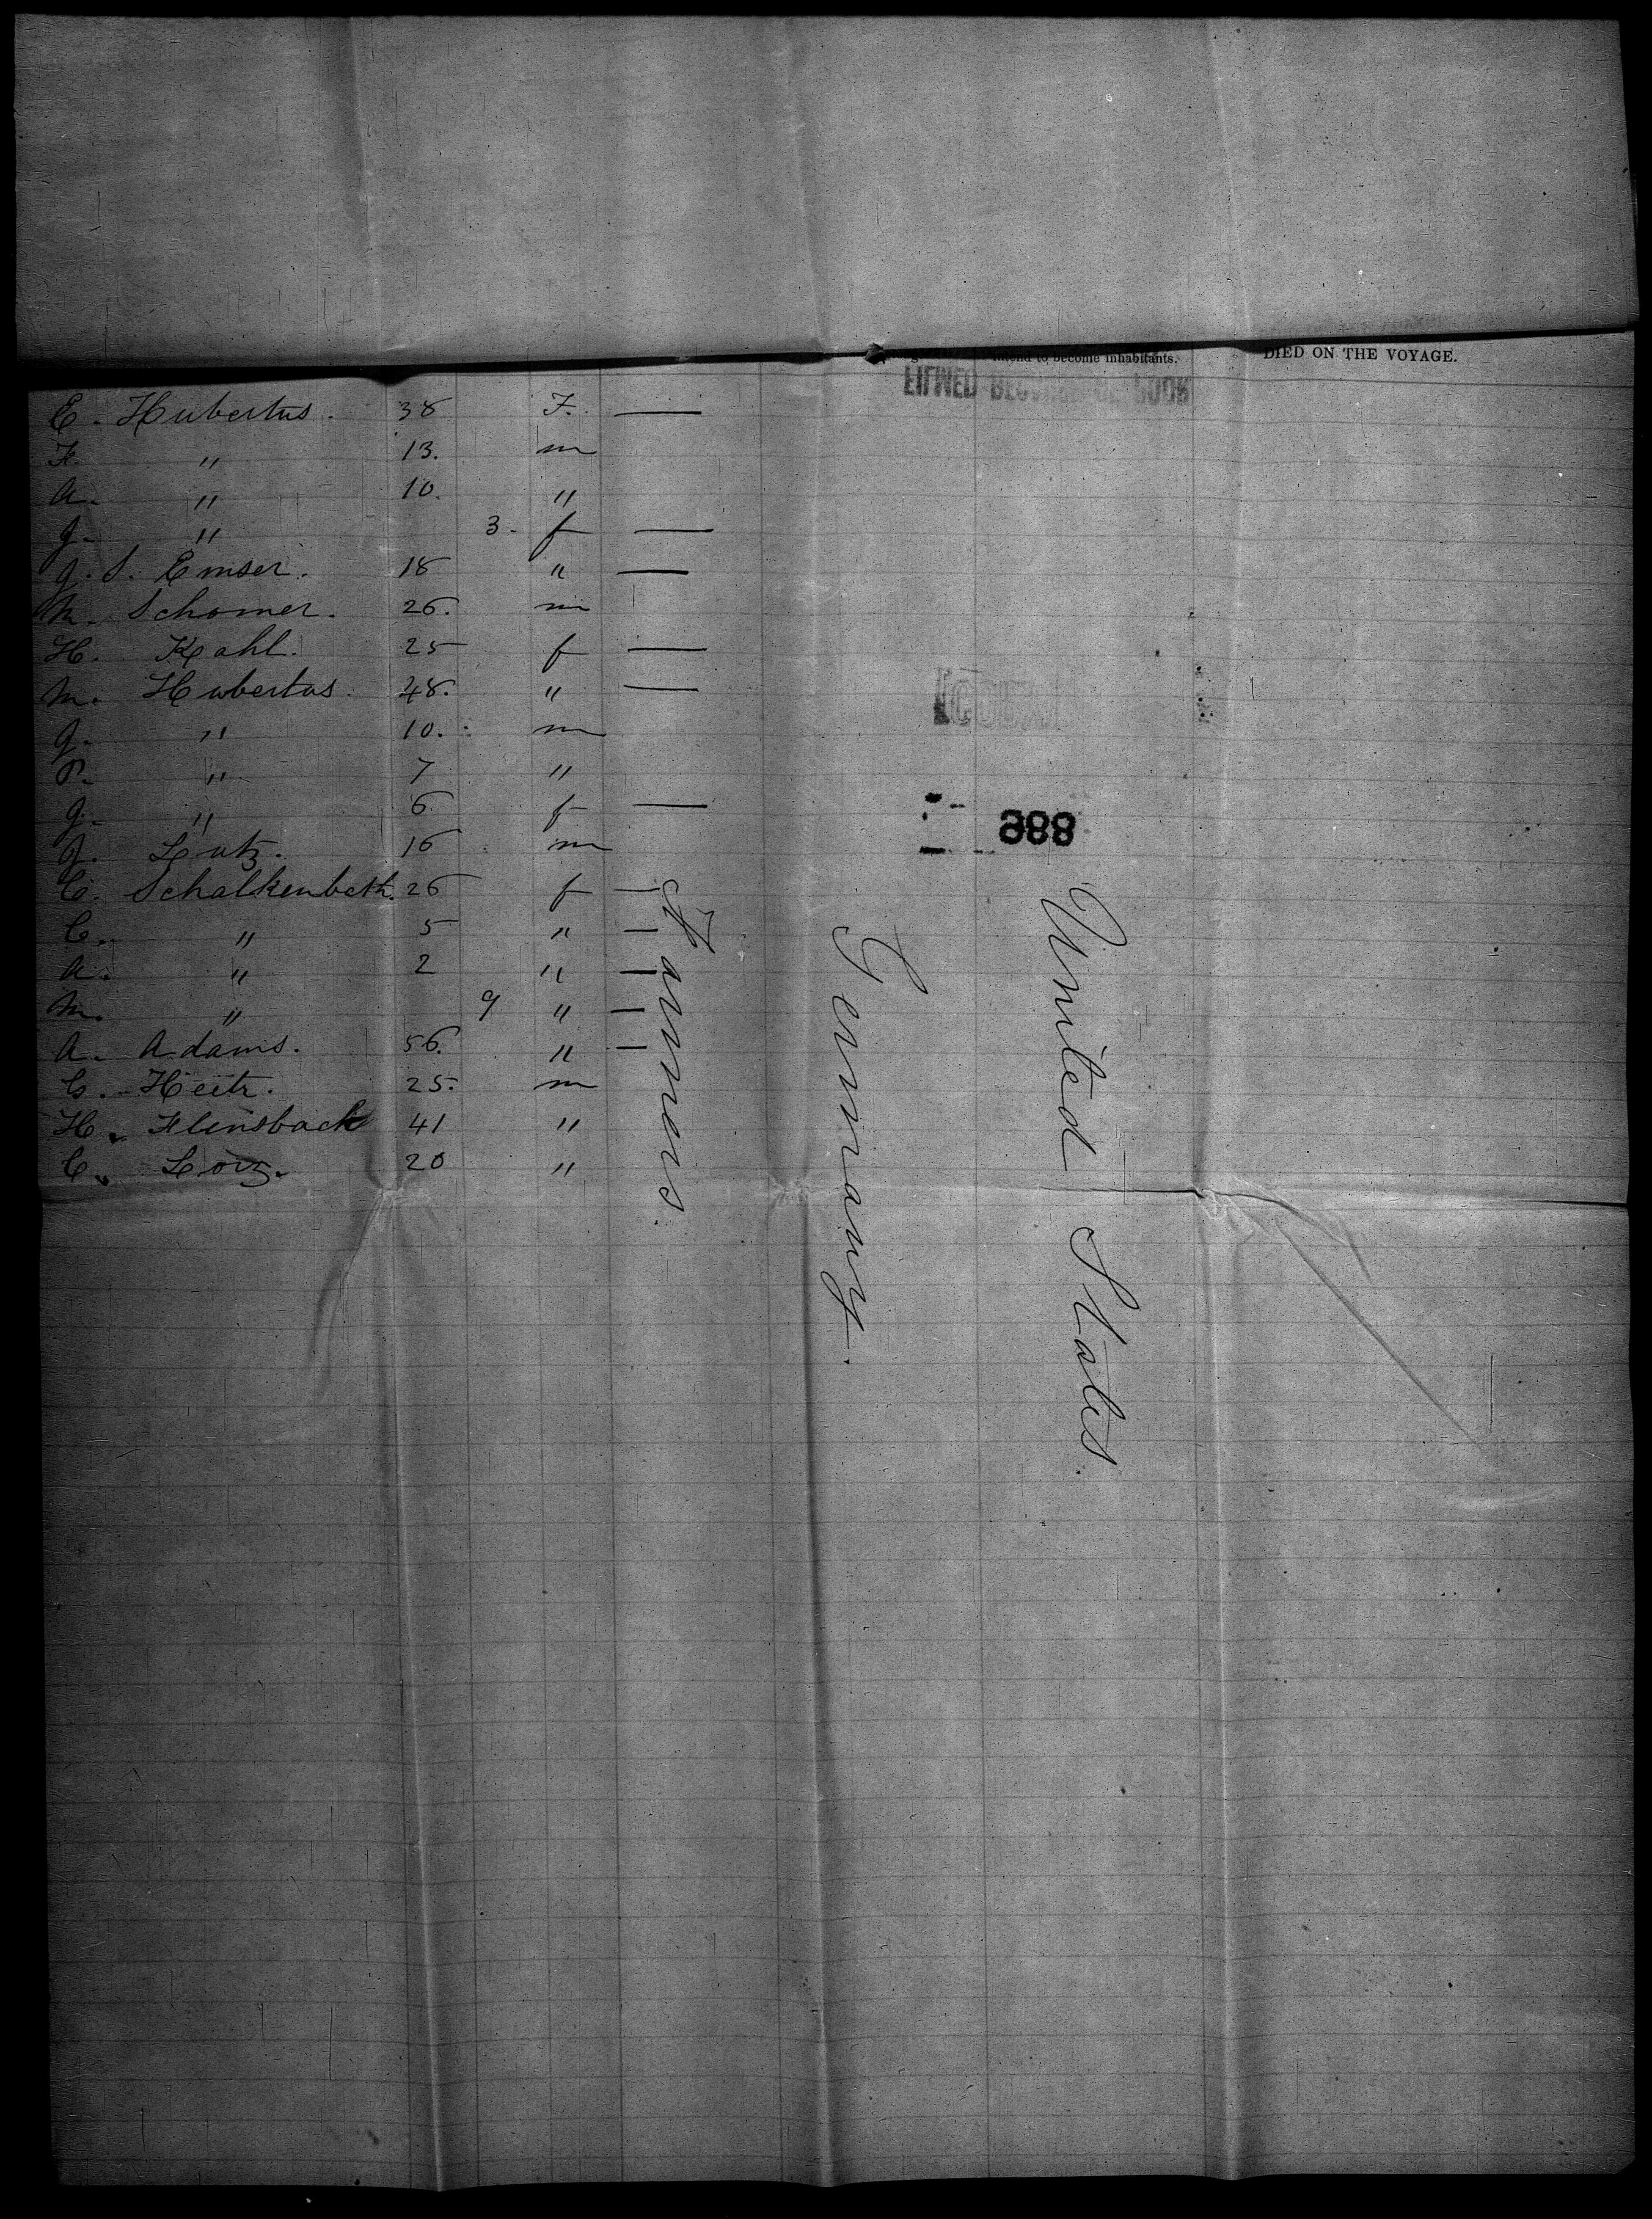 intend to become inhabitants. DIED ON THE VOYAGE.
E. Hubertus. 38 F. —
F. " 13. m
A. " 10. "
J. " 3. f —
J. S. Emser. 18 " —
M. Schomer. 26. m
H. Kahl. 25 f —
M. Hubertus. 48. " —
J. " 10. m
P. " 7 "
J. " 6 f —
J. Lutz. 16 m
C. Schalkenbath. 26 f —
C. " 5 " —
A. " 2 " —
M. " 9 " —
A. Adams. 56. " —
C. Heitz. 25. m
H. Flensback 41 "
C. Loiz. 20 "
Farmers.
Germany.
United States.
988